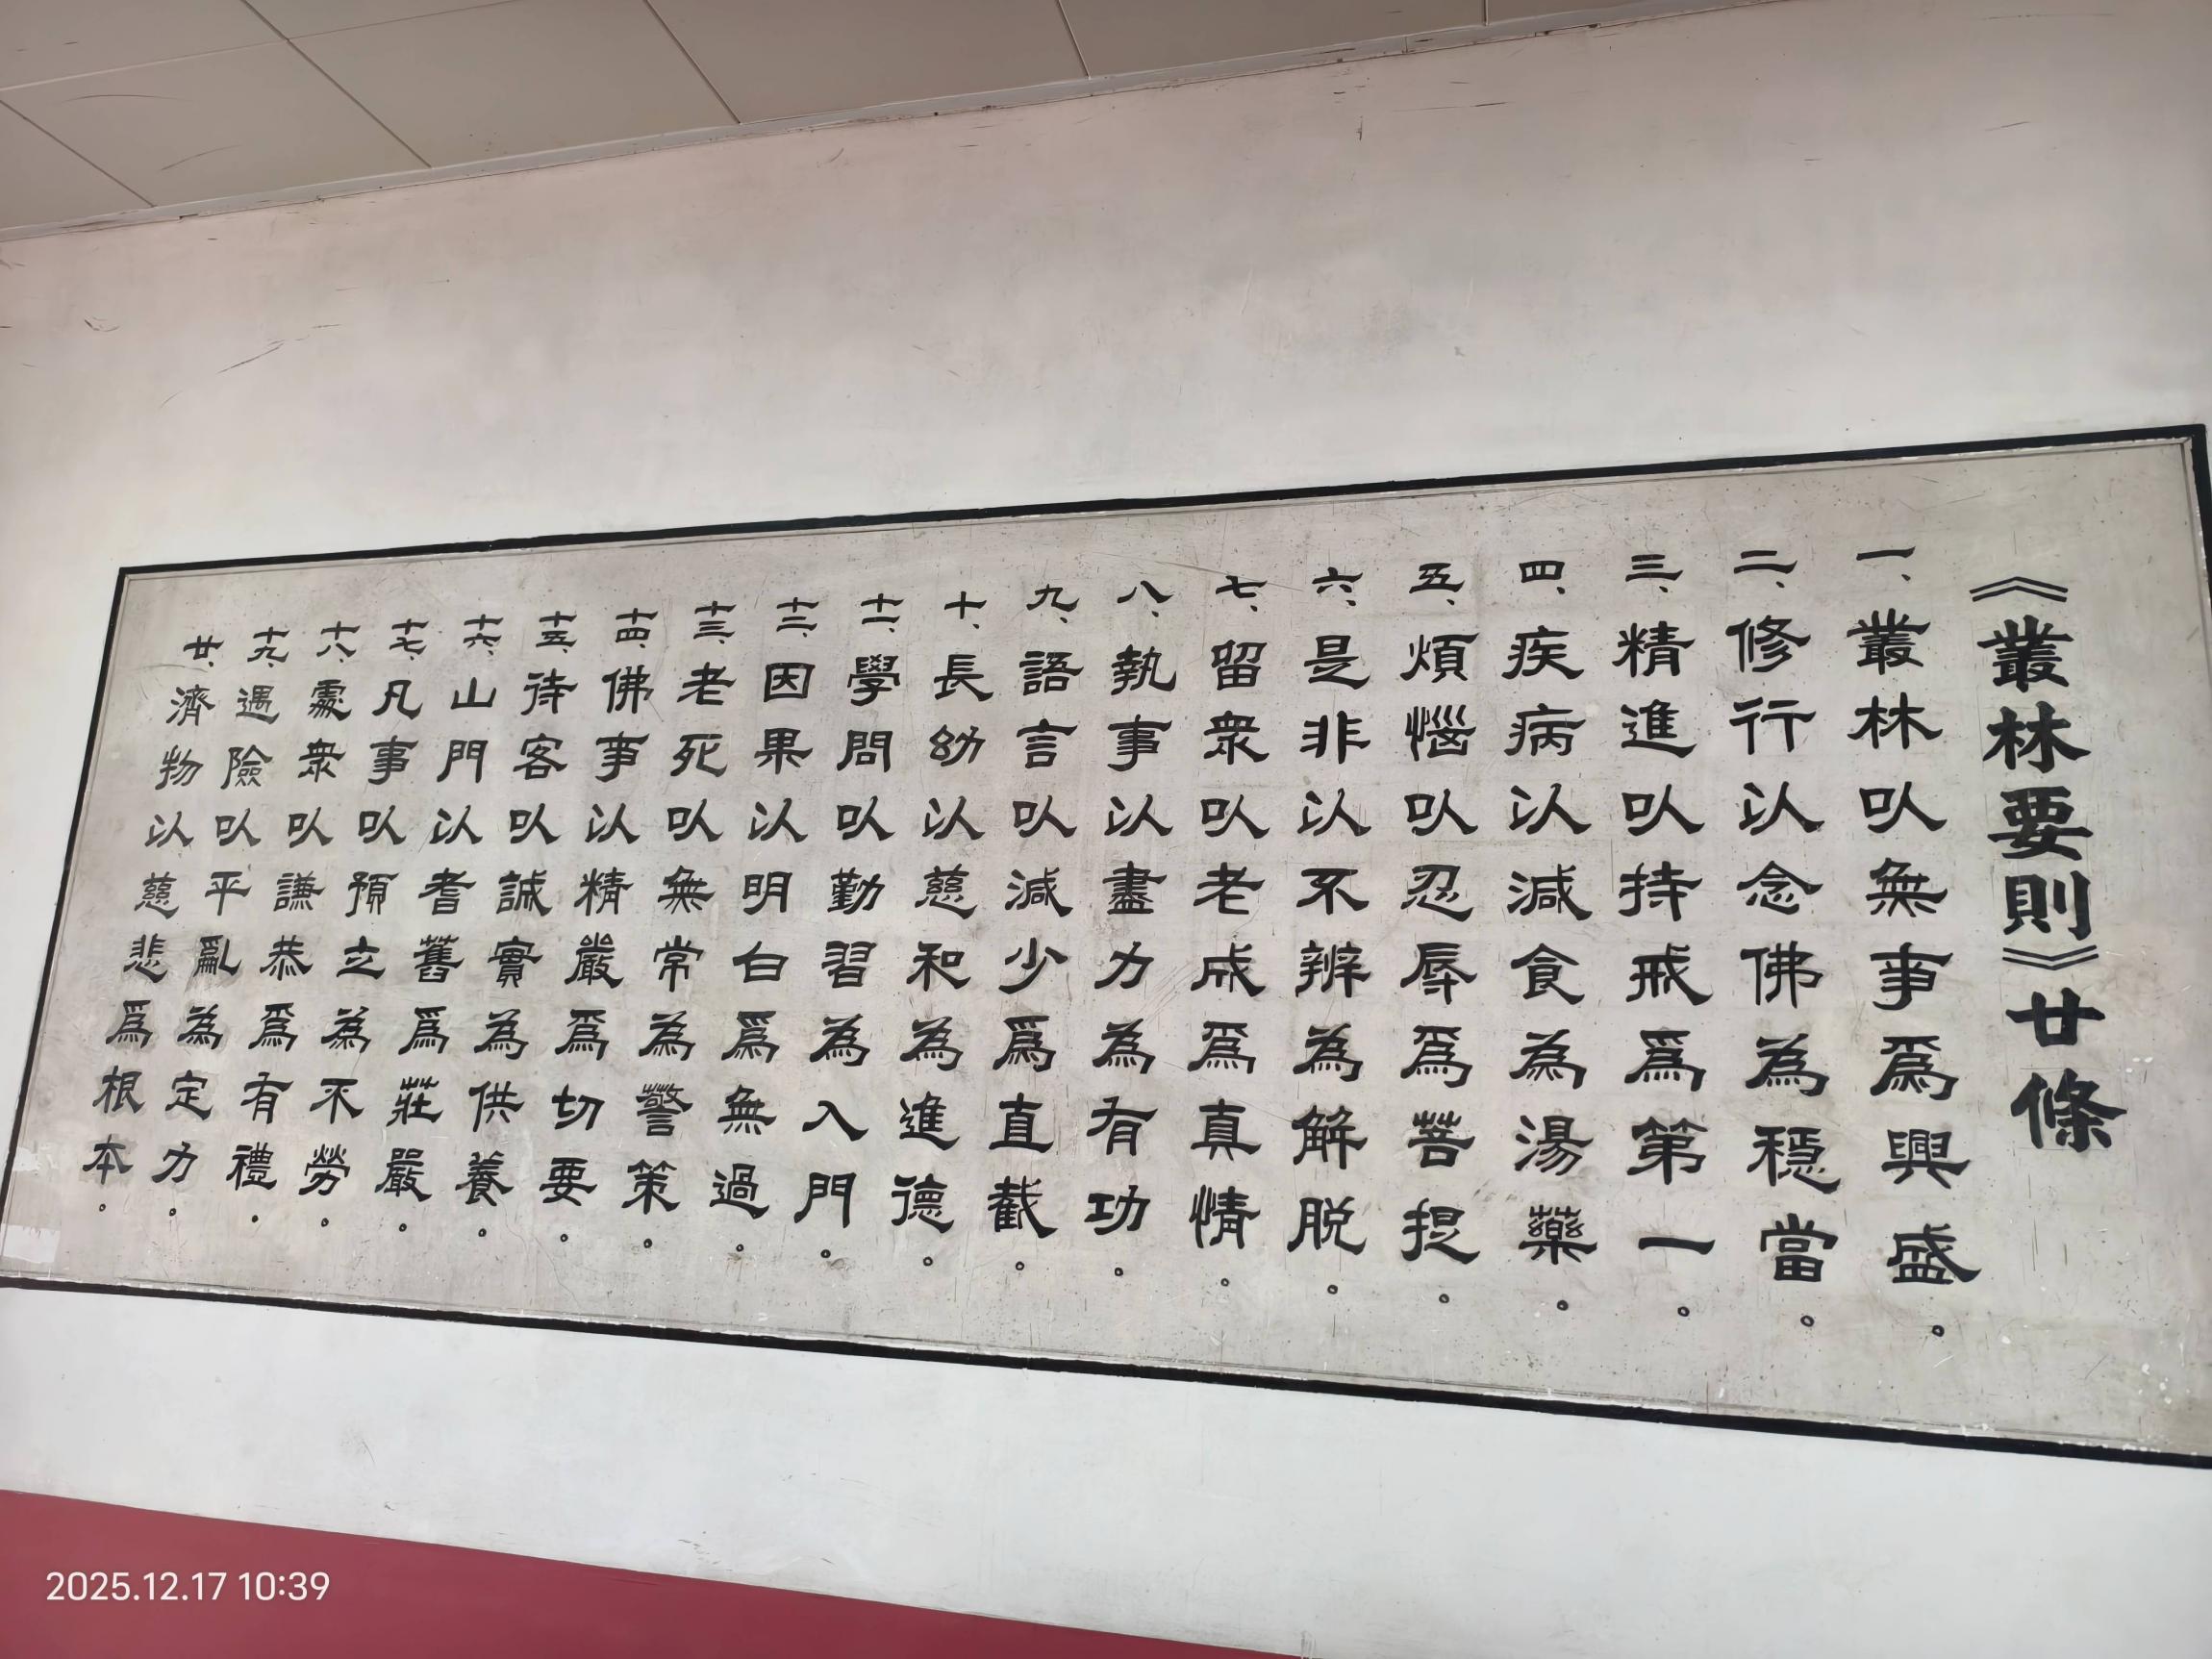 《叢林要則》廿條
一、叢林以無事為興盛。
二、修行以念佛為穩當。
三、精進以持戒為第一。
四、疾病以減食為湯藥。
五、煩惱以忍辱為菩提。
六、是非以不辨為解脱。
七、留衆以老成為真情。
八、執事以盡力為有功。
九、語言以減少為直截。
十、長幼以慈和為進德。
十一、學問以勤習為入門。
十二、因果以明白為無過。
十三、老死以無常為警策。
十四、佛事以精嚴為切要。
十五、待客以誠實為供養。
十六、山門以耆舊為莊嚴。
十七、凡事以預立為不勞。
十八、處衆以謙恭為有禮。
十九、遇險以平亂為定力。
廿、濟物以慈悲為根本。
2025.12.17 10:39